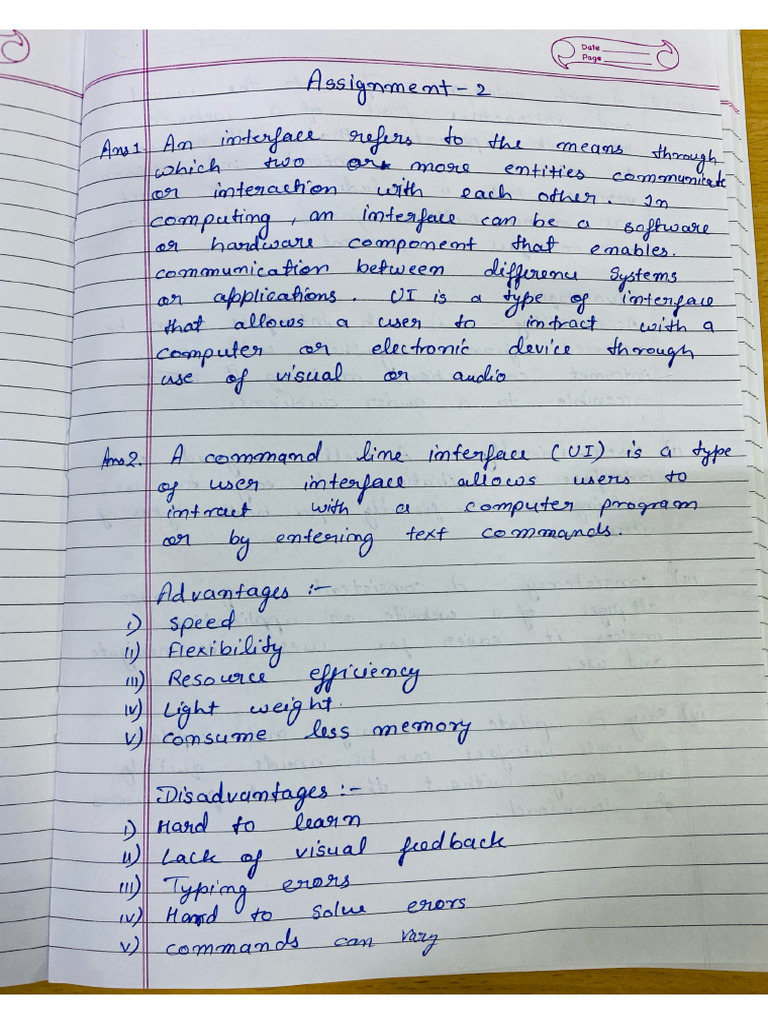 Date
Page
Assignment - 2
Ans 1. An interface refers to the means through
which two or more entities communicate
or interaction with each other. In
computing, an interface can be a software
or hardware component that enables.
communication between difference systems
or applications. UI is a type of interface
that allows a user to intract with a
computer or electronic device through
use of visual or audio
Ans 2. A command line interface (UI) is a type
of user interface allows users to
intract with a computer program
or by entering text commands.
Advantages :-
i) Speed
ii) Flexibility
iii) Resource efficiency
iv) Light weight.
v) consume less memory
Disadvantages :-
i) Hard to learn
ii) Lack of visual feedback
iii) Typing erors
iv) Hard to solve erors
v) commands can vary